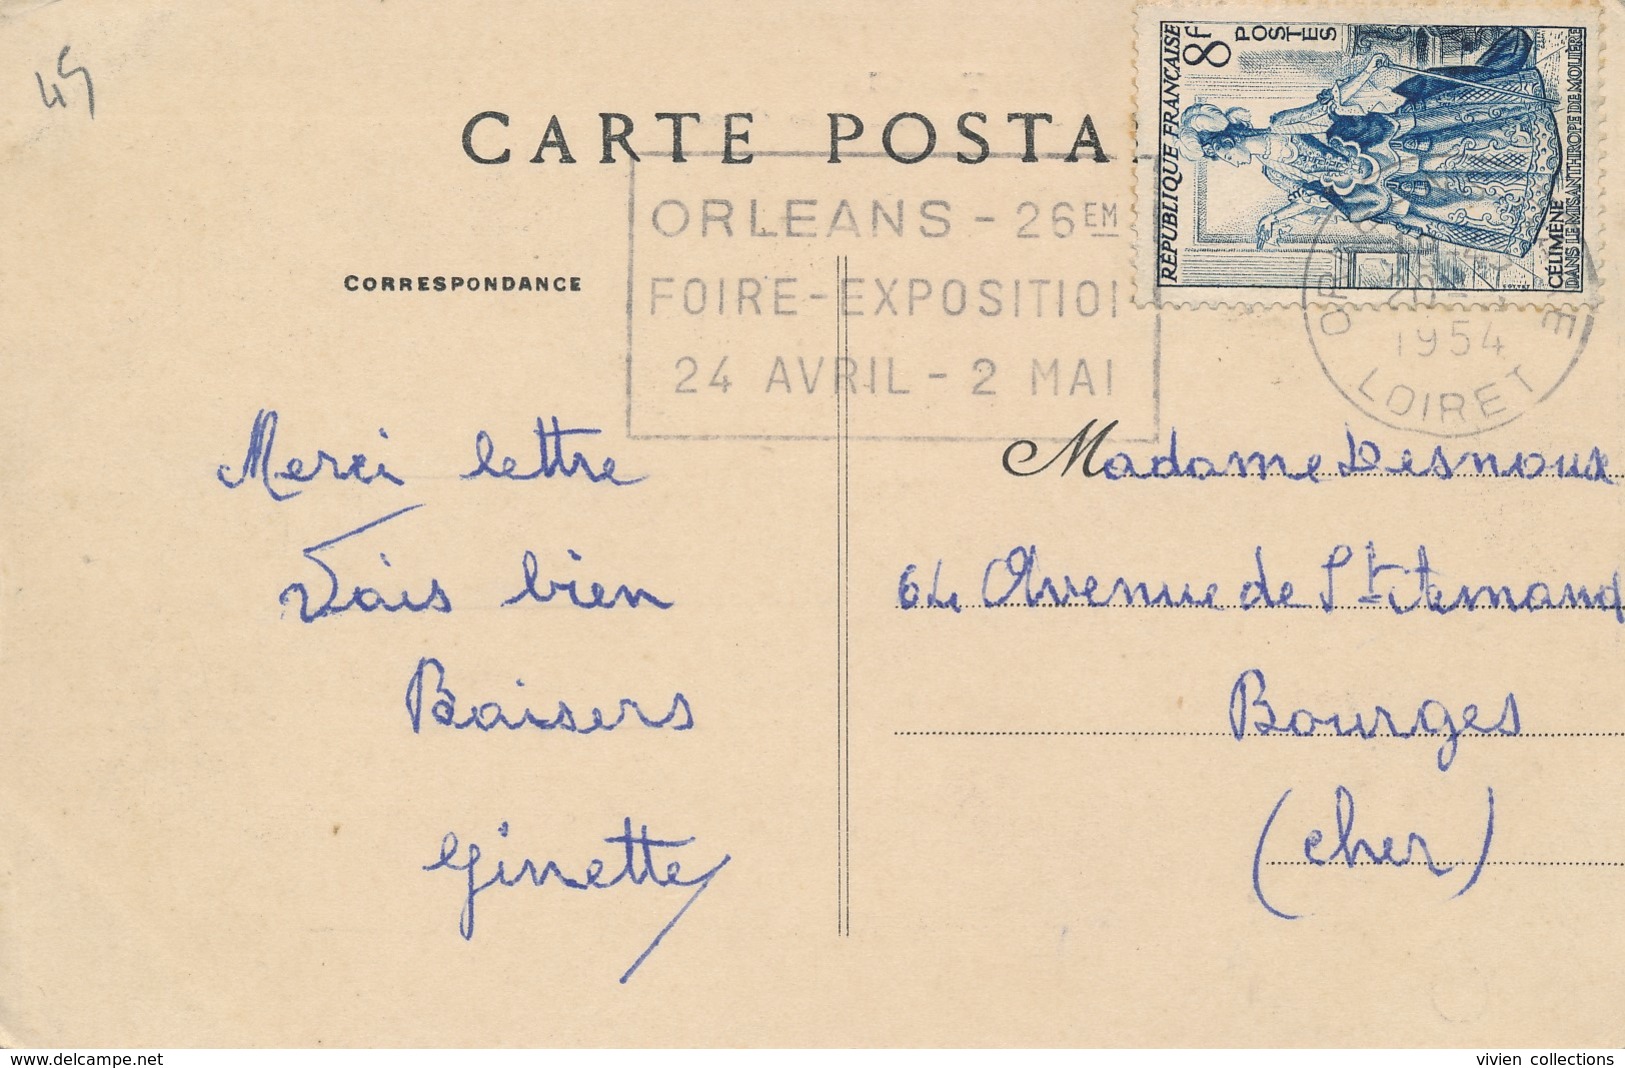 45
CARTE POSTA
RÉPUBLIQUE FRANÇAISE
8f
POSTES
CÉLIMÈNE
DANS LE MISANTHROPE DE MOLIÈRE
ORLEANS - 26EM
FOIRE-EXPOSITION
24 AVRIL - 2 MAI
1954
LOIRET
CORRESPONDANCE
Merci lettre
Vais bien
Baisers
Ginette
Madame Desnoux
64 Avenue de St Amand
Bourges
(Cher)
www.delcampe.net
vivien collections